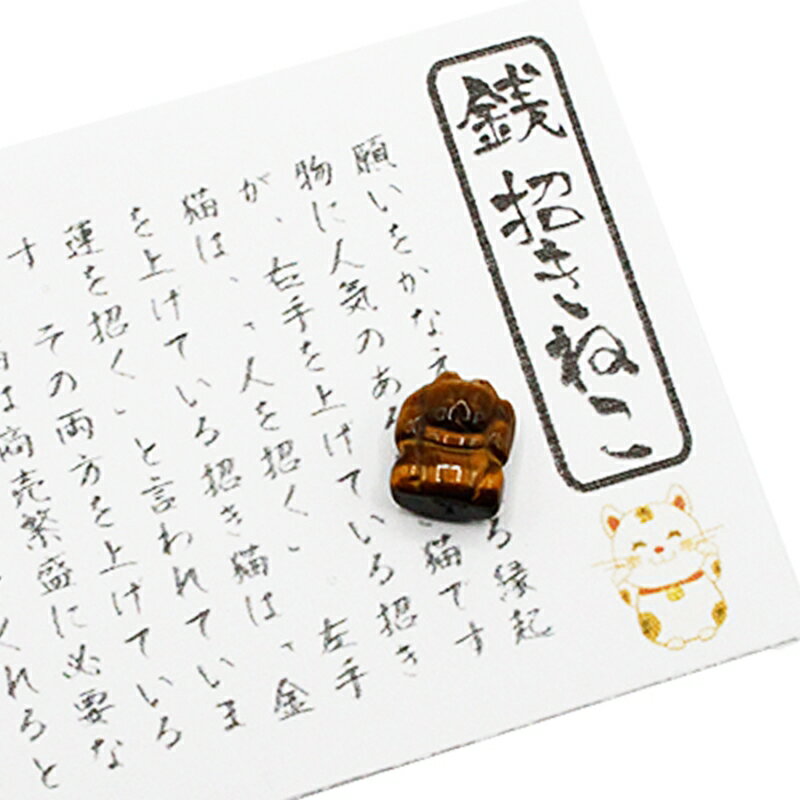 銭 招きねこ
願いをかなえ る縁起
物に人気のある 猫です
が、右手を上げている招き
猫は、「人を招く」 左手
を上げている招き猫は、「金
運を招く」と言われていま
す その両方を上げている
は商売繁盛に必要な
くれると